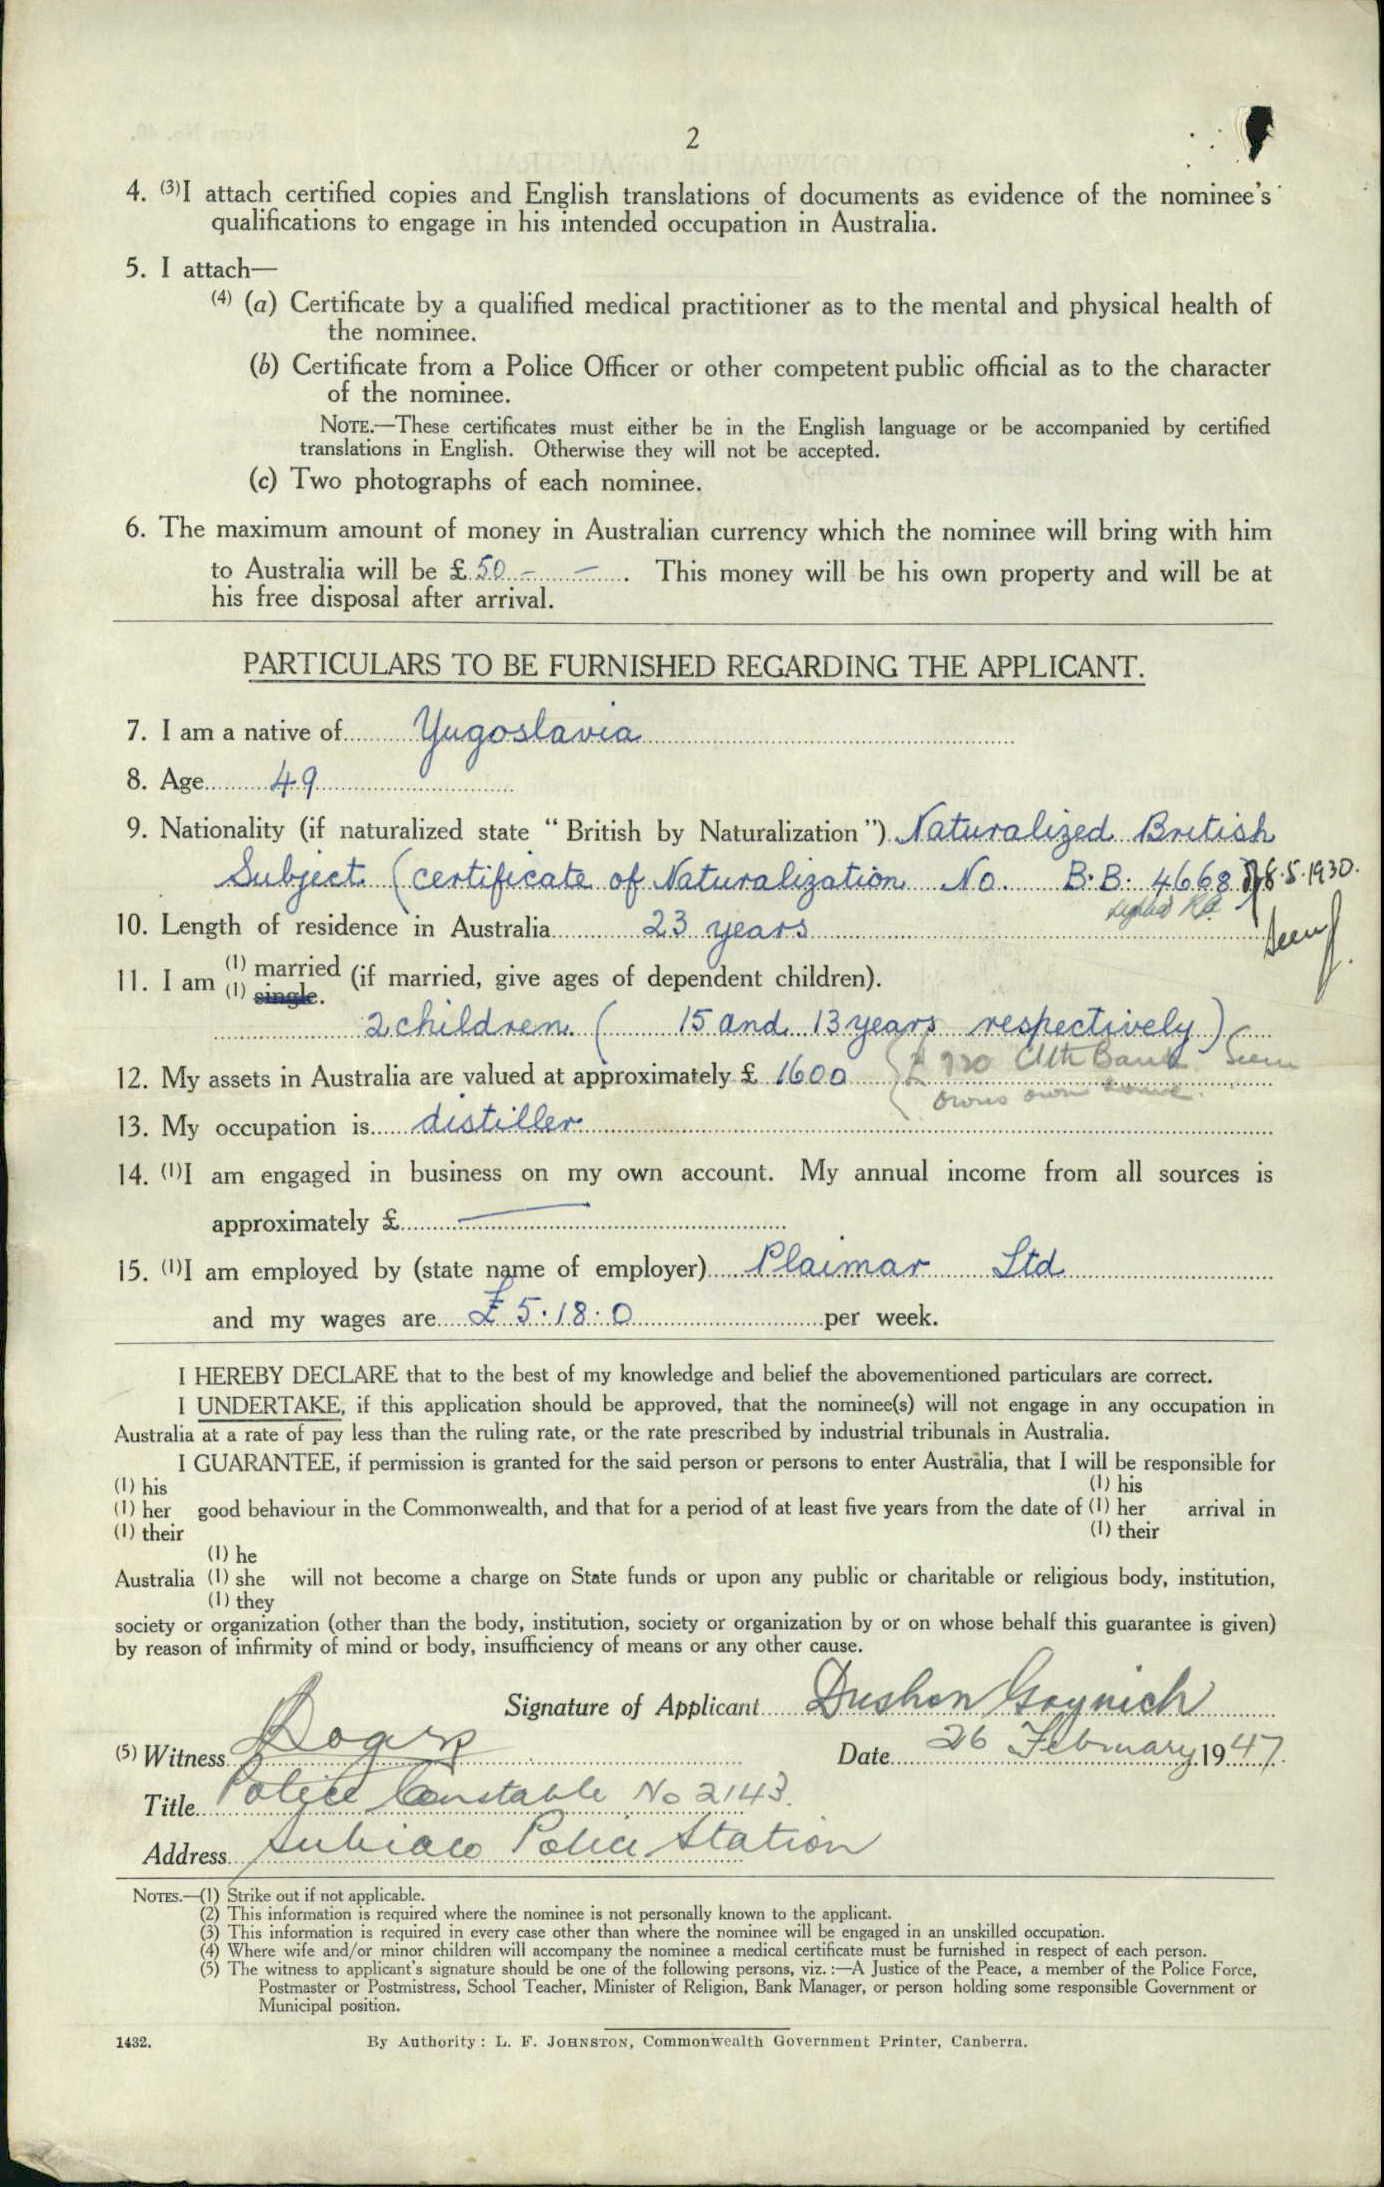 2
4. (3)I attach certified copies and English translations of documents as evidence of the nominee's
qualifications to engage in his intended occupation in Australia.
5. I attach—
(4) (a) Certificate by a qualified medical practitioner as to the mental and physical health of
the nominee.
(b) Certificate from a Police Officer or other competent public official as to the character
of the nominee.
NOTE.—These certificates must either be in the English language or be accompanied by certified
translations in English. Otherwise they will not be accepted.
(c) Two photographs of each nominee.
6. The maximum amount of money in Australian currency which the nominee will bring with him
to Australia will be £ 50 - - . This money will be his own property and will be at
his free disposal after arrival.
PARTICULARS TO BE FURNISHED REGARDING THE APPLICANT.
7. I am a native of Yugoslavia
8. Age 49
9. Nationality (if naturalized state "British by Naturalization") Naturalized British
Subject (certificate of Naturalization No. B.B. 4668 of 8.5.1930.
10. Length of residence in Australia 23 years
Seen
11. I am (1) married (if married, give ages of dependent children).
(1) single.
2 children ( 15 and 13 years respectively )
12. My assets in Australia are valued at approximately £ 1600 (£ 920 C'lth Bank Seen
owns own home.
13. My occupation is distiller
14. (1)I am engaged in business on my own account. My annual income from all sources is
approximately £ —
15. (1)I am employed by (state name of employer) Plaimar Ltd
and my wages are £ 5.18.0 per week.
I HEREBY DECLARE that to the best of my knowledge and belief the abovementioned particulars are correct.
I UNDERTAKE, if this application should be approved, that the nominee(s) will not engage in any occupation in
Australia at a rate of pay less than the ruling rate, or the rate prescribed by industrial tribunals in Australia.
I GUARANTEE, if permission is granted for the said person or persons to enter Australia, that I will be responsible for
(1) his (1) his
(1) her good behaviour in the Commonwealth, and that for a period of at least five years from the date of (1) her arrival in
(1) their (1) their
(1) he
Australia (1) she will not become a charge on State funds or upon any public or charitable or religious body, institution,
(1) they
society or organization (other than the body, institution, society or organization by or on whose behalf this guarantee is given)
by reason of infirmity of mind or body, insufficiency of means or any other cause.
Signature of Applicant Dushan Goynich
(5) Witness
Date 26 February 1947.
Title Police Constable No 2143.
Address Subiaco Police Station
NOTES.—(1) Strike out if not applicable.
(2) This information is required where the nominee is not personally known to the applicant.
(3) This information is required in every case other than where the nominee will be engaged in an unskilled occupation.
(4) Where wife and/or minor children will accompany the nominee a medical certificate must be furnished in respect of each person.
(5) The witness to applicant's signature should be one of the following persons, viz.:—A Justice of the Peace, a member of the Police Force,
Postmaster or Postmistress, School Teacher, Minister of Religion, Bank Manager, or person holding some responsible Government or
Municipal position.
1432. By Authority: L. F. JOHNSTON, Commonwealth Government Printer, Canberra.